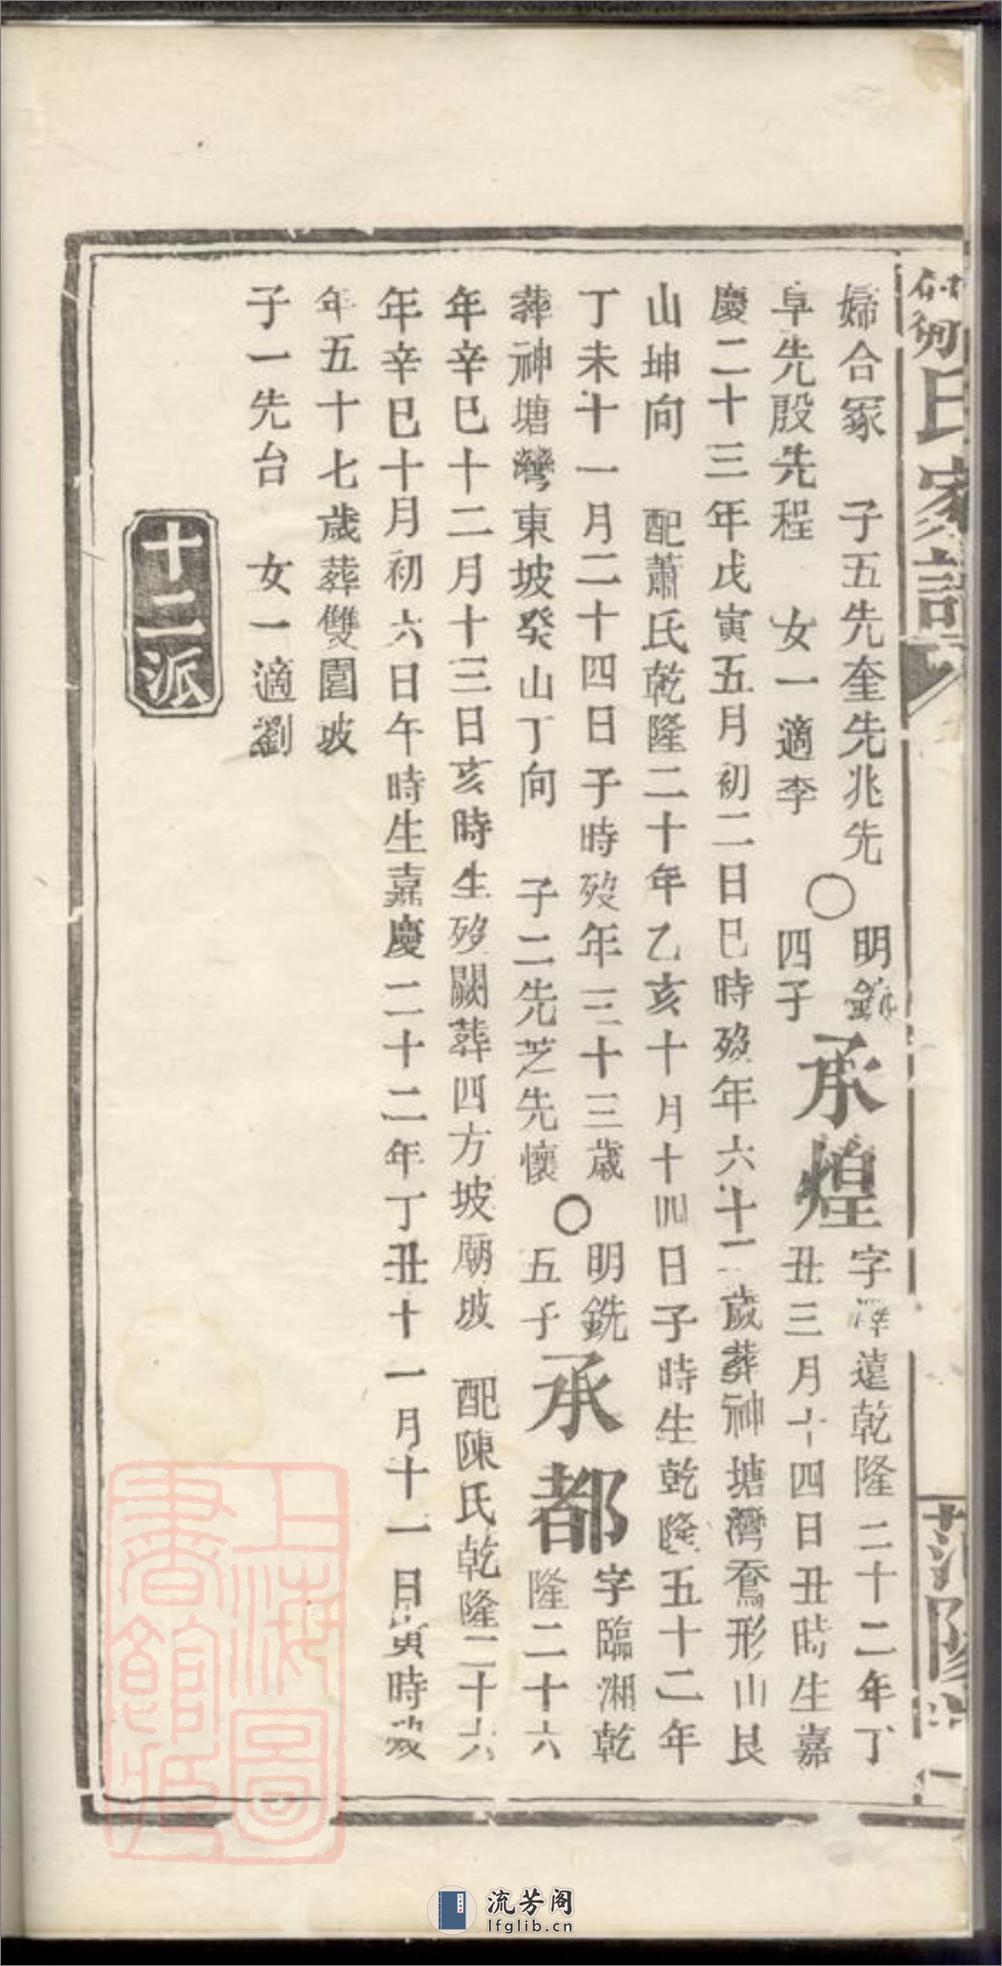 氏家譜
范陽
婦合冢 子五先奎先兆先
阜先殷先程 女一適李 〇
明 四子
承煌
字 遠乾隆二十二年丁
丑三月十四日丑時生嘉
慶二十三年戊寅五月初二日巳時歿年六十二歲葬神塘灣鴦形山艮
山坤向 配蕭氏乾隆二十年乙亥十月十四日子時生乾隆五十二年
丁未十一月二十四日子時歿年三十三歲
葬神塘灣東坡癸山丁向 子二先芝先懷 〇
明銑 五子
承都
字臨湘乾
隆二十六
年辛巳十二月十三日亥時生歿闕葬四方坡廟坡 配陳氏乾隆二十六
年辛巳十月初六日午時生嘉慶二十二年丁丑十一月十一日寅時歿
年五十七歲葬雙園坡
子一先台 女一適劉
十二派
上海圖書館藏
流芳阁
lfglib.cn